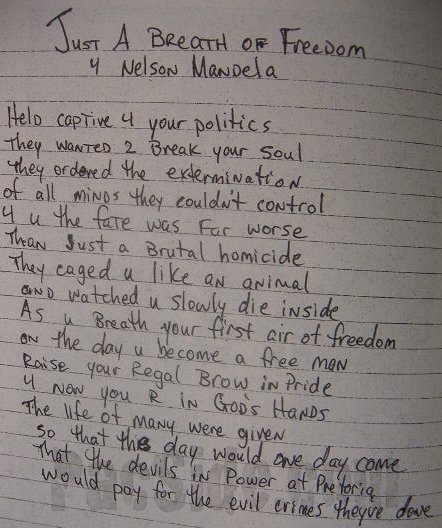 Just A Breath of Freedom
4 Nelson Mandela
Held captive 4 your politics
They wanted 2 Break your soul
They ordered the extermination
of all minds they couldn't control
4 u the fate was far worse
Than Just a Brutal homicide
They caged u like an animal
and watched u slowly die inside
As u Breath your first air of freedom
on the day u become a free man
Raise your Regal Brow in Pride
4 now you R in God's Hands
The life of many were given
So that the day would one day come
That the devils in Power at Pretoria
would pay for the evil crimes theyve done